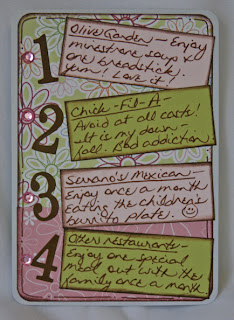 1
Olive Garden – Enjoy
minestrone soup &
one breadstick.
Yum! Love it!
2
Chick-Fil-A-
Avoid at all costs!
It is my down-
fall. Bad addiction.
3
Serrano's Mexican –
Enjoy once a month
Eating the children's
burrito plate. ☺
4
Other restaurants-
Enjoy one special
meal out with the
family once a month